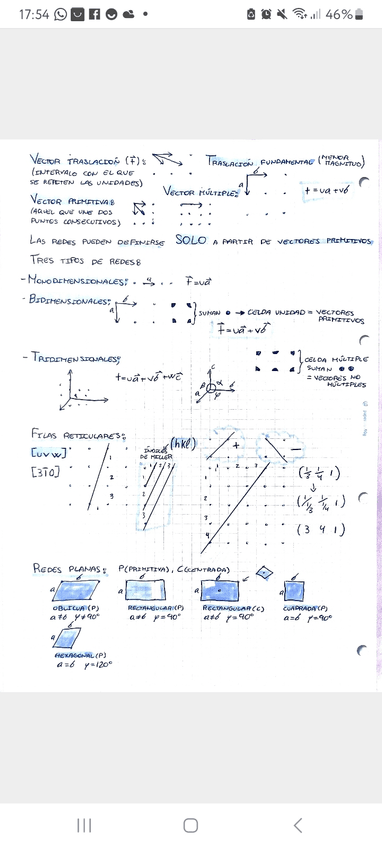 17:54 46%
VECTOR TRASLACIÓN (T):
(INTERVALO CON EL QUE
SE REPITEN LAS UNIDADES)
TRASLACIÓN FUNDAMENTAL (MENOR
MAGNITUD)
VECTOR MÚLTIPLE:
a b
t = ua + vb
VECTOR PRIMITIVA:
(AQUEL QUE UNE DOS
PUNTOS CONSECUTIVOS)
LAS REDES PUEDEN DEFINIRSE SOLO A PARTIR DE VECTORES PRIMITIVOS
TRES TIPOS DE REDES:
- MONODIMENSIONALES: T = ua
- BIDIMENSIONALES: a b
SUMAN → CELDA UNIDAD = VECTORES
PRIMITIVOS
T = ua + vb
- TRIDIMENSIONALES:
t = ua + vb + wc
a b c α β γ
CELDA MÚLTIPLE
SUMAN
= VECTORES NO
MÚLTIPLES
FILAS RETICULARES:
[uvw]
[31̄0]
1
2
3
ÍNDICES
DE MILLER
(hkl)
1 2 3
1
2
3
+ −
1 2 3
1
2
3
4
(1/3 1/4 1)
↓
(1/1/3 1/1/4 1)
(3 4 1)
REDES PLANAS: P (PRIMITIVA), C (CENTRADA)
OBLICUA (P)
a≠b γ≠90°
RECTANGULAR (P)
a≠b γ=90°
RECTANGULAR (C)
a≠b γ=90°
CUADRADA (P)
a=b γ=90°
HEXAGONAL (P)
a=b γ=120°